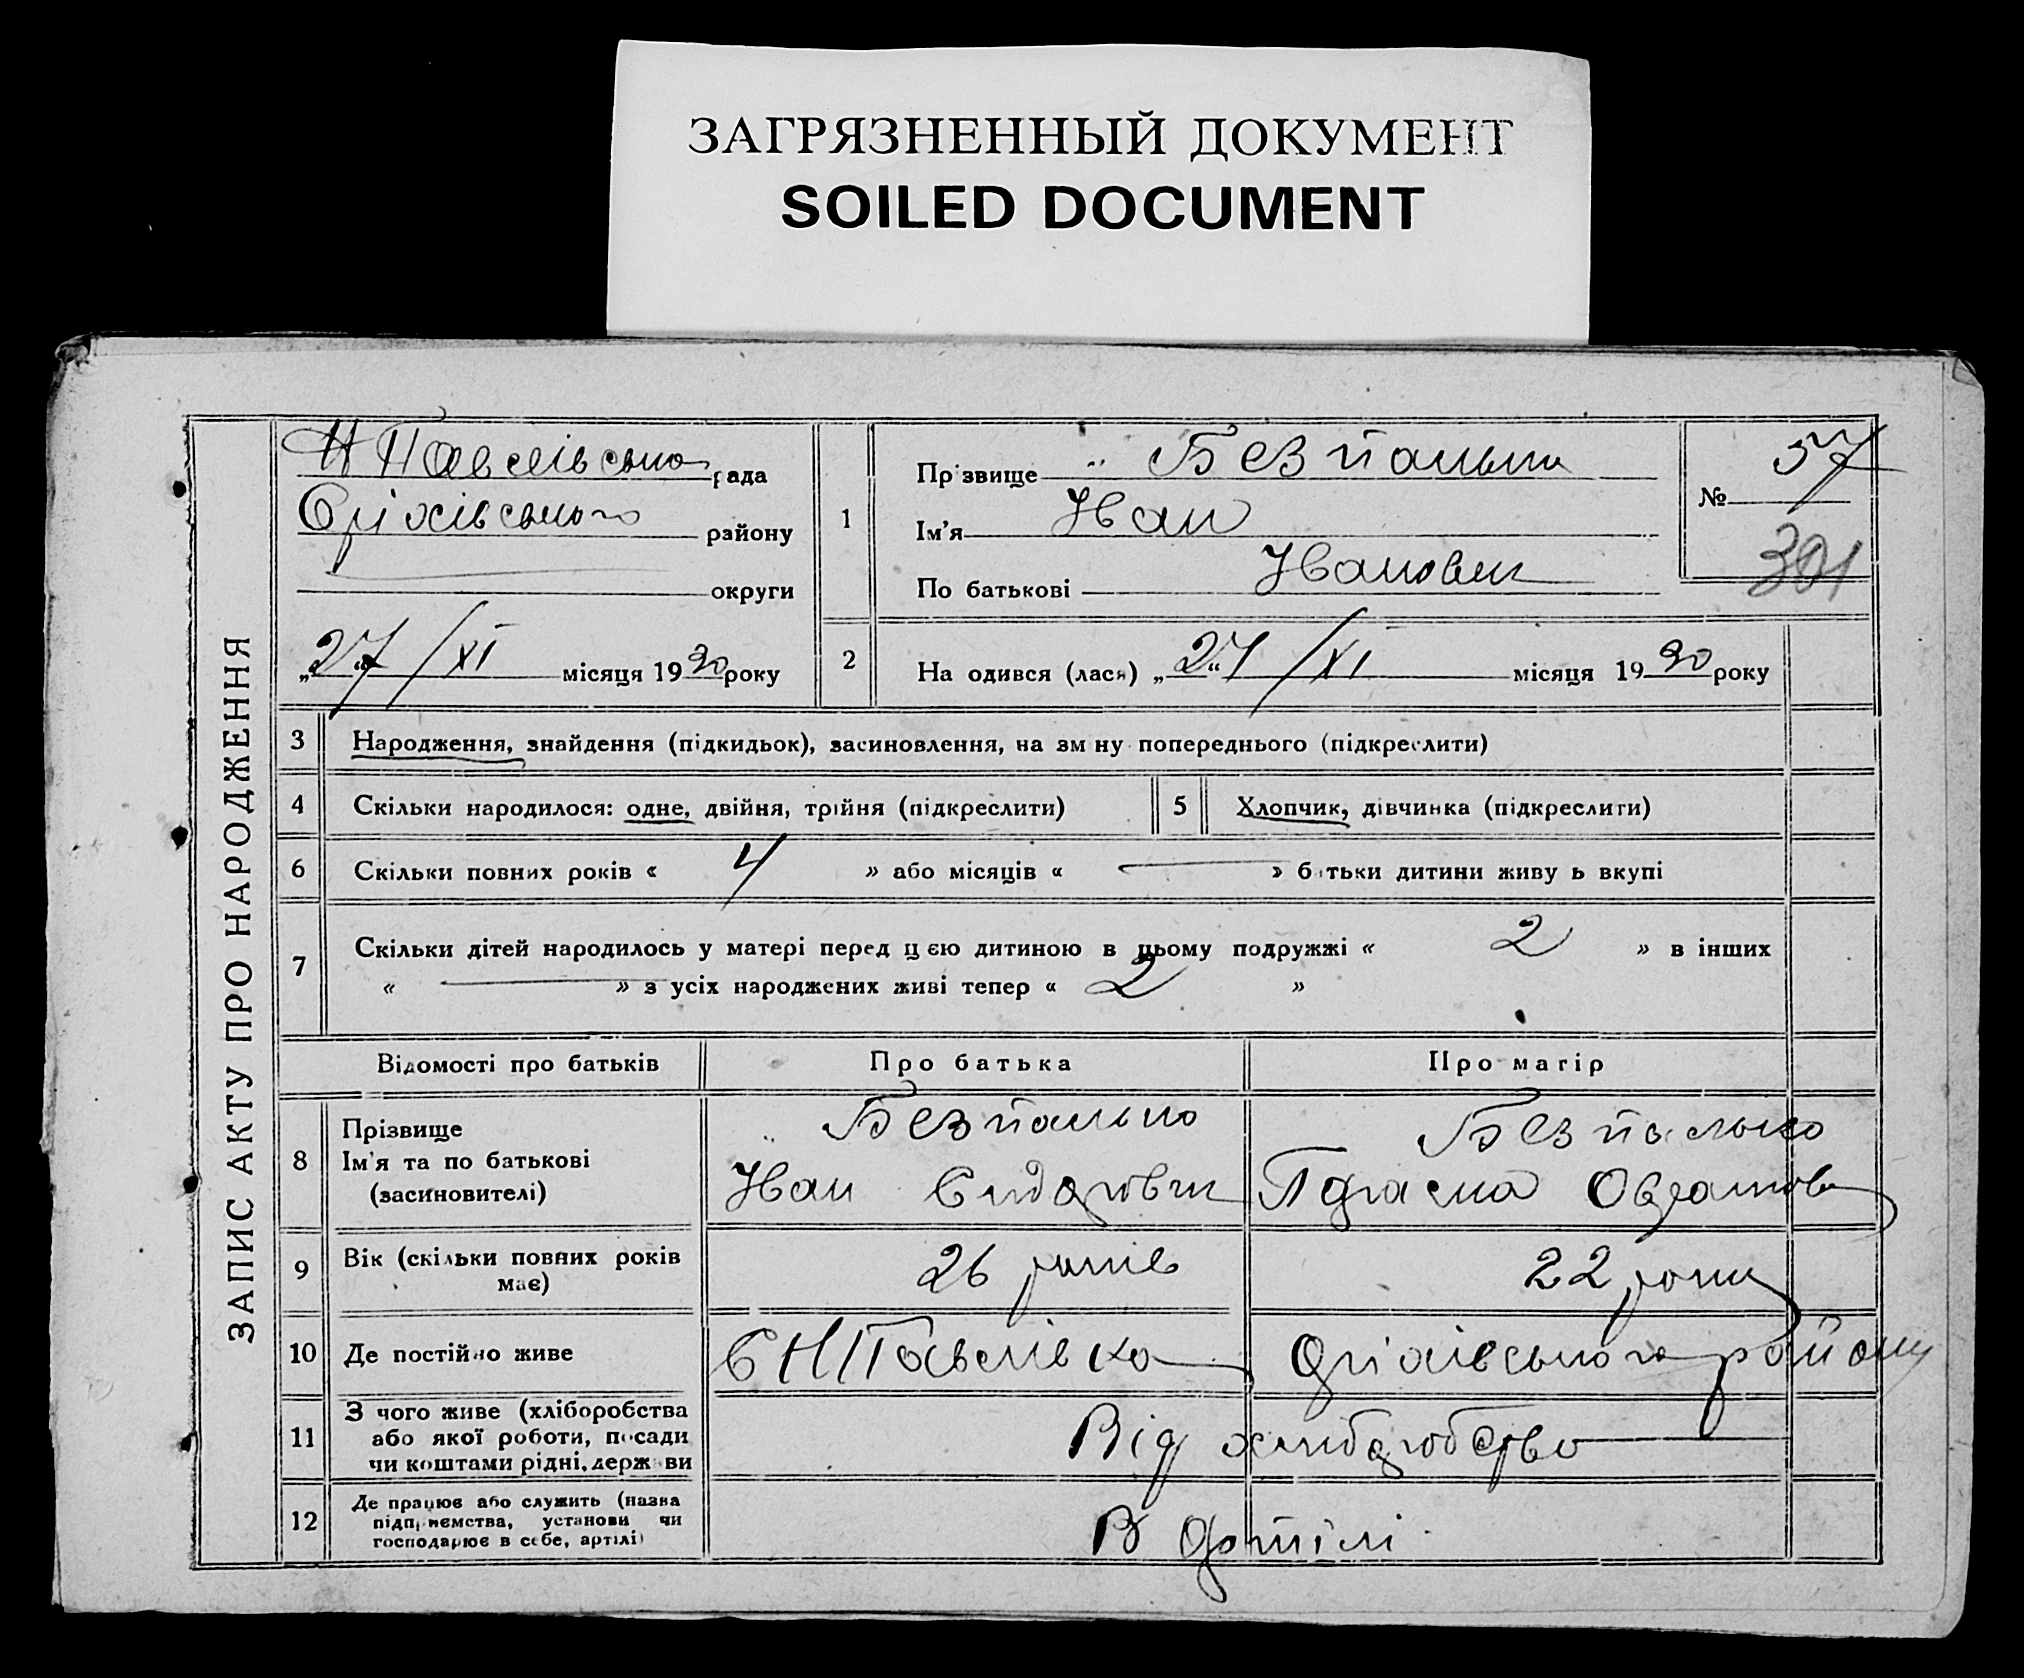 ЗАГРЯЗНЕННЫЙ ДОКУМЕНТ
SOILED DOCUMENT
ЗАПИС АКТУ ПРО НАРОДЖЕННЯ
Н Павлівська рада
Оріхівського району
округи
„27“/XI місяця 1930 року
1
Прізвище Безпалько
Ім'я Іван
По батькові Іванович
№ 57
391
2
На одився (лася) „27“/XI місяця 1930 року
3 Народження, знайдення (підкидьок), засиновлення, на зм ну попереднього (підкреслити)
4 Скільки народилося: одне, двійня, трійня (підкреслити)
5 Хлопчик, дівчинка (підкреслити)
6 Скільки повних років « 4 » або місяців « — » батьки дитини живу ь вкупі
7 Скільки дітей народилось у матері перед ц єю дитиною в цьому подружжі « 2 » в інших
« — » з усіх народжених живі тепер « 2 »
Відомості про батьків Про батька Про матір
8 Прізвище
Ім'я та по батькові
(засиновителі)
Безпалько
Іван Сидорович
Безпалько
9 Вік (скільки повних років
має)
26 років
22 роки
10 Де постійно живе
С Н Павлівка Оріхівського району
11 З чого живе (хліборобства
або якої роботи, посади
чи коштами рідні, держави
Від хліборобство
12 Де працює або служить (назва
підприємства, установи чи
господарює в себе, артілі)
В артілі